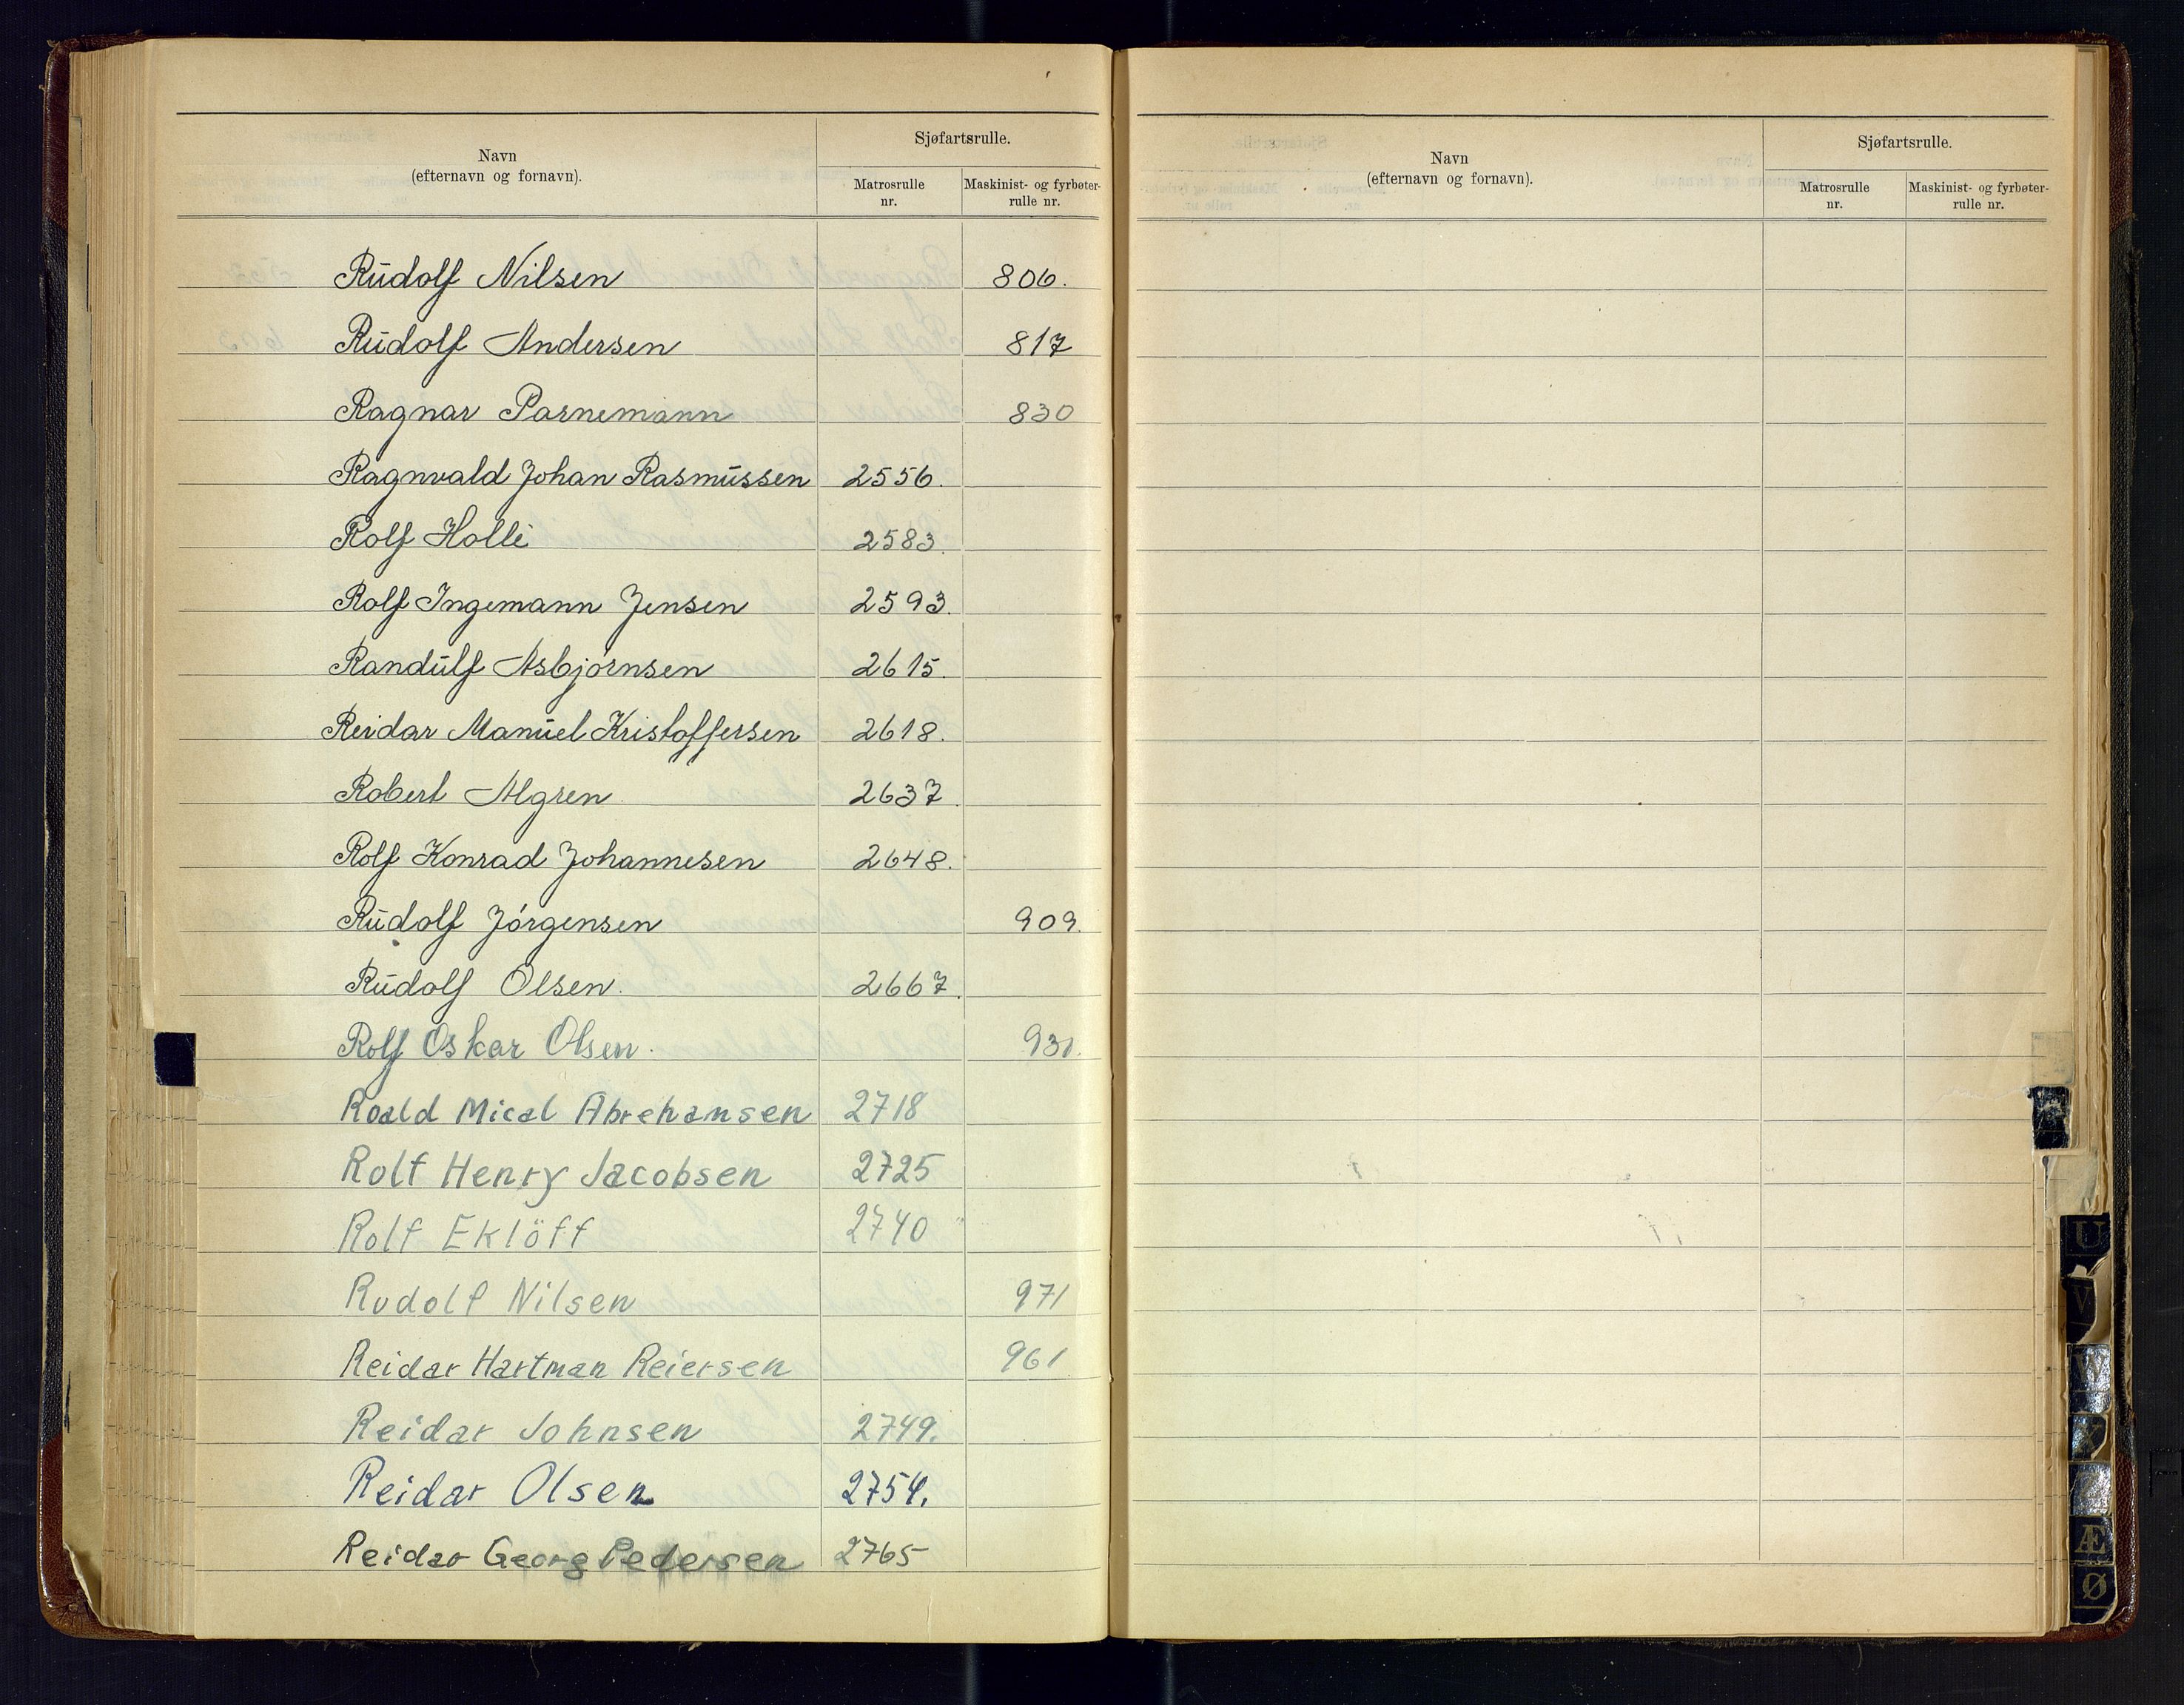 Navn
(efternavn og fornavn).
Sjøfartsrulle.
Matrosrulle
nr.
Maskinist- og fyrbøter-
rulle nr.
Rudolf Nilsen 806.
Rudolf Andersen 817
Ragnar Parnemann 830
Ragnvald Johan Rasmussen 2556.
Rolf Holli 2583.
Rolf Ingemann Jensen 2593.
Randulf Asbjørnsen 2615.
Reidar Manuel Kristoffersen 2618.
Robert Algren 2637.
Rolf Konrad Johannesen 2648.
Rudolf Jørgensen 909.
Rudolf Olsen. 2667.
Rolf Oskar Olsen. 931.
Roald Mical Abrehamsen 2718
Rolf Henry Jacobsen 2725
Rolf Eklöff 2740
Rudolf Nilsen 971
Reidar Hartman Reiersen 961
Reidar Johnsen 2749.
Reidar Olsen 2754.
Reidar Georg Pedersen 2765
Navn
(efternavn og fornavn).
Sjøfartsrulle.
Matrosrulle
nr.
Maskinist- og fyrbøter-
rulle nr.
U
V
W
X
Æ
Ø